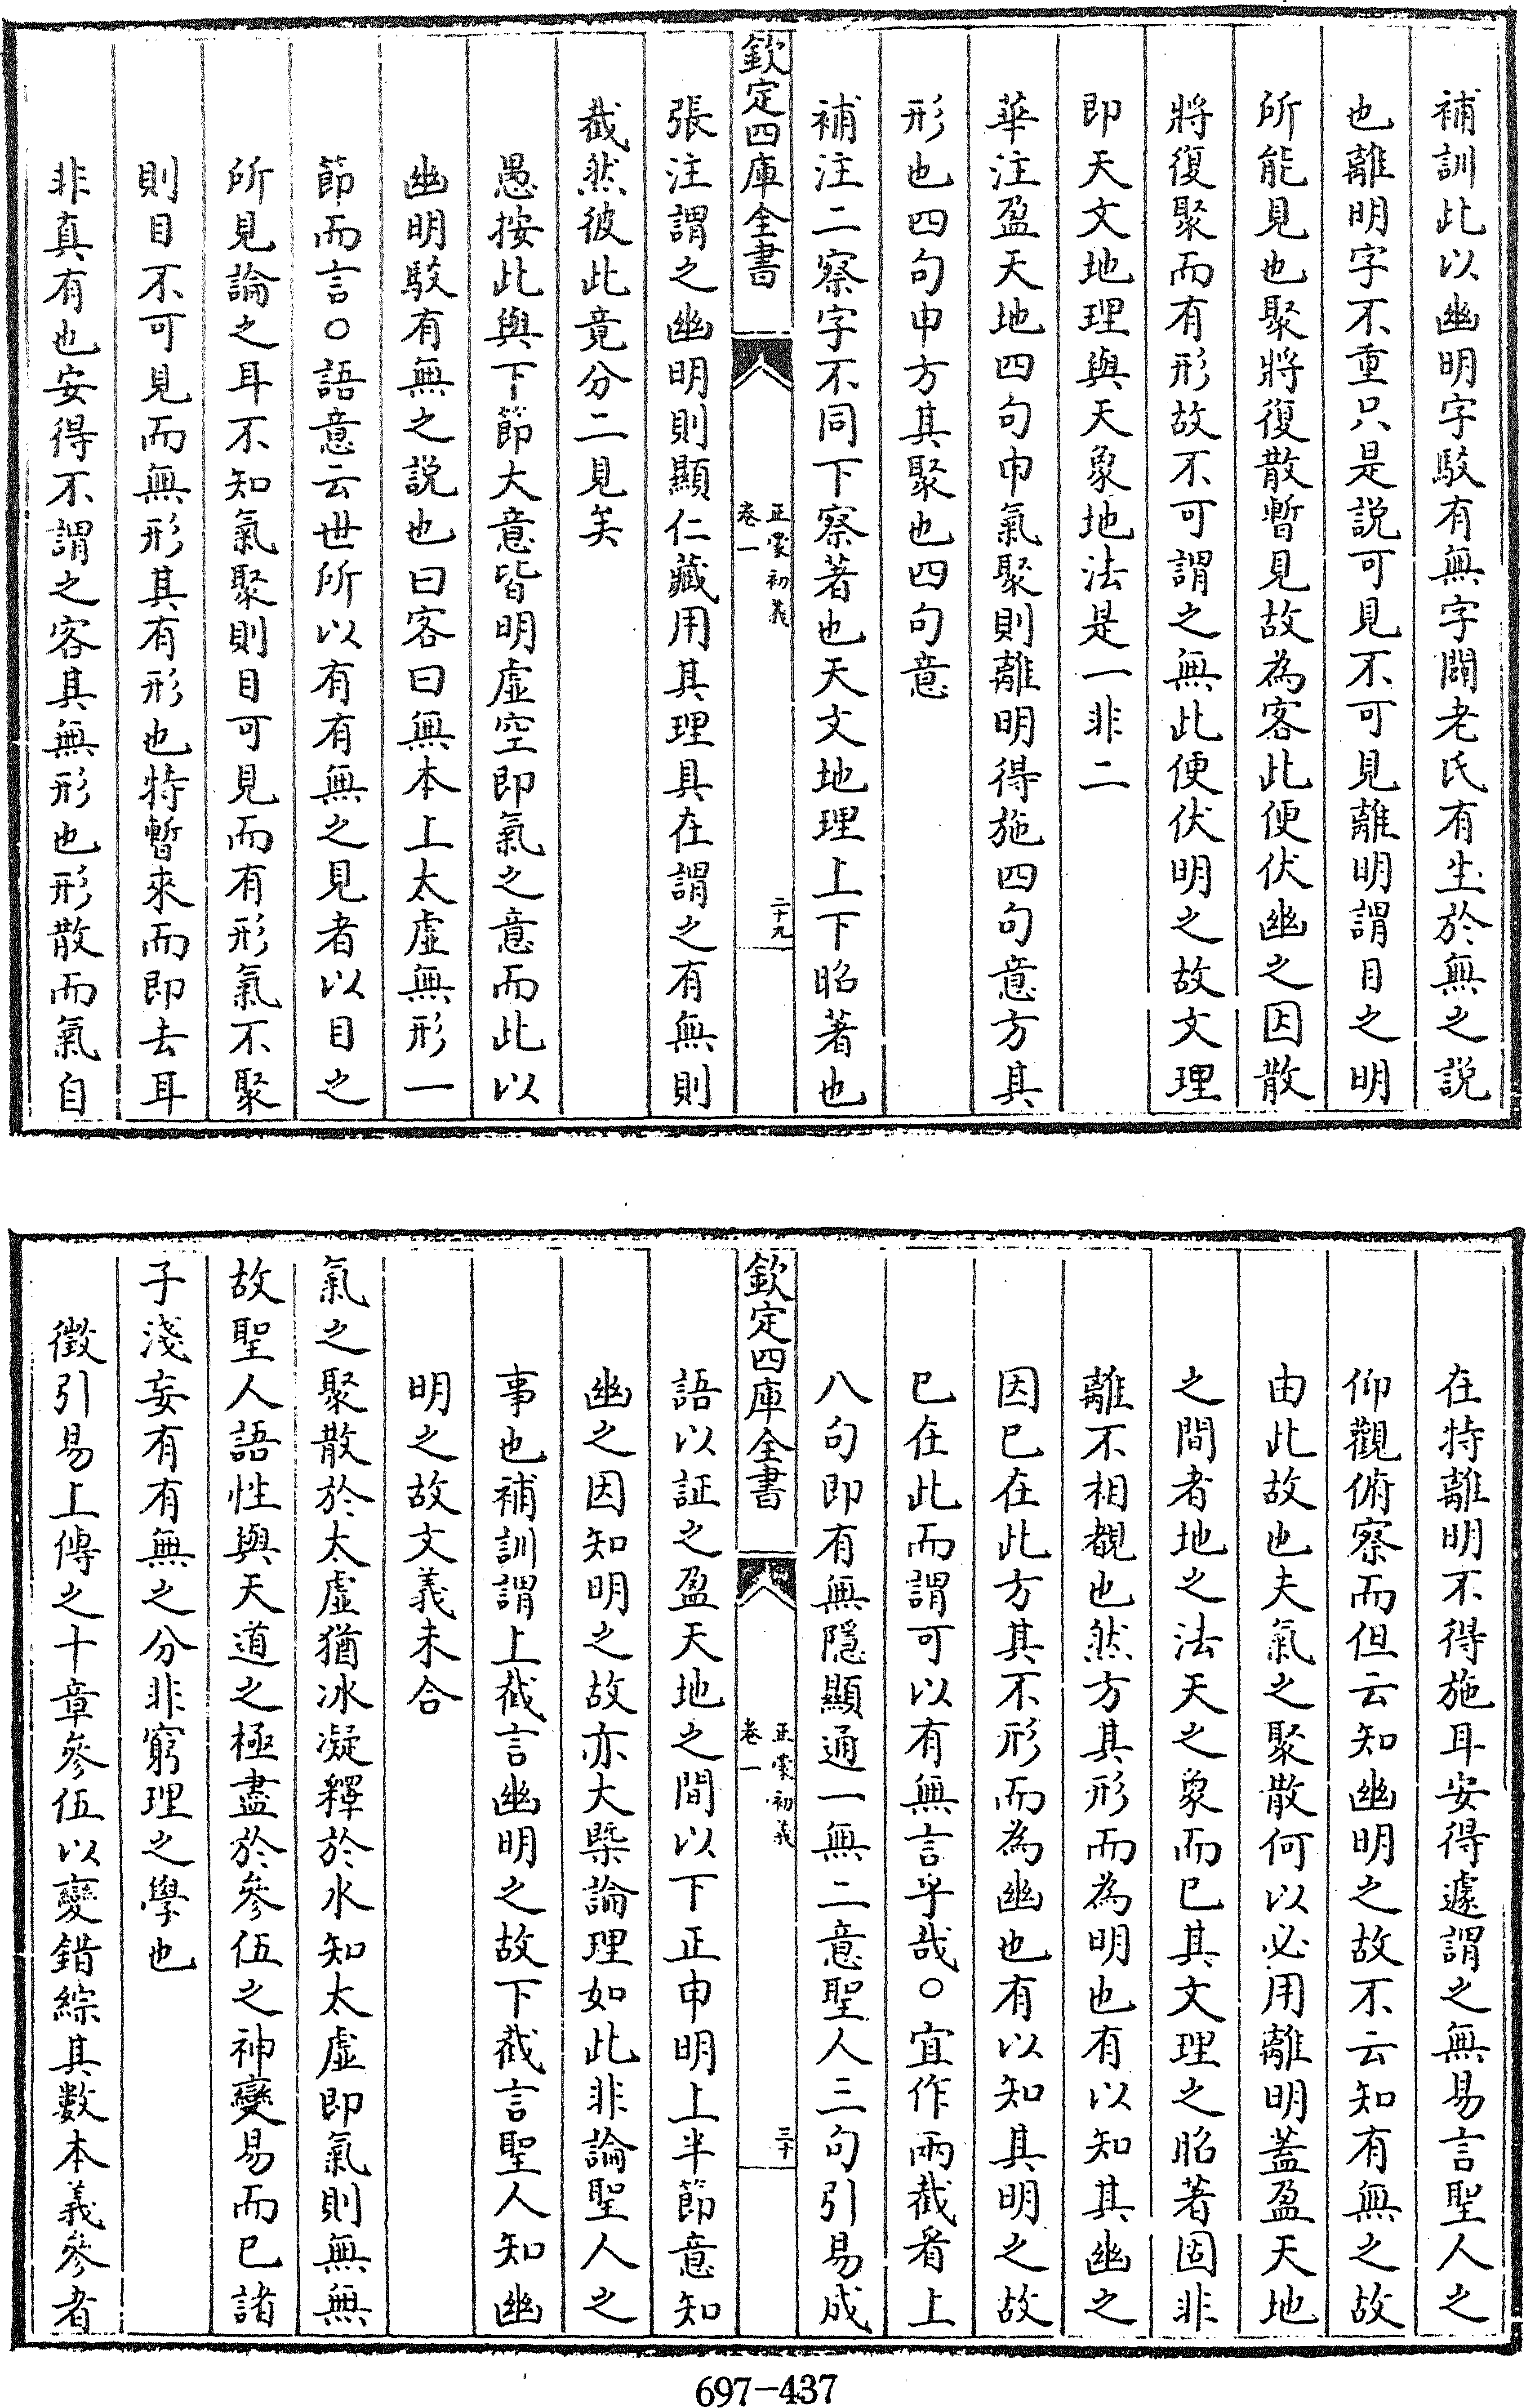 補訓此以幽明字駁有無字闢老氏有生於無之説
也離明字不重只是説可見不可見離明謂目之明
所能見也聚將復散暫見故為客此便伏幽之因散
將復聚而有形故不可謂之無此便伏明之故文理
即天文地理與天象地法是一非二
華注盈天地四句申氣聚則離明得施四句意方其
形也四句申方其聚也四句意
補注二察字不同下察著也天文地理上下昭著也
欽定四庫全書
正蒙初義
卷一
二十九
張注謂之幽明則顯仁藏用其理具在謂之有無則
截然彼此竟分二見矣
愚按此與下節大意皆明虛空即氣之意而此以
幽明駁有無之説也曰客曰無本上太虛無形一
節而言○語意云世所以有有無之見者以目之
所見論之耳不知氣聚則目可見而有形氣不聚
則目不可見而無形其有形也特暫來而即去耳
非真有也安得不謂之客其無形也形散而氣自
在特離明不得施耳安得遽謂之無易言聖人之
仰觀俯察而但云知幽明之故不云知有無之故
由此故也夫氣之聚散何以必用離明蓋盈天地
之間者地之法天之象而已其文理之昭著固非
離不相覩也然方其形而為明也有以知其幽之
因已在此方其不形而為幽也有以知其明之故
已在此而謂可以有無言乎哉○宜作兩截看上
八句即有無隱顯通一無二意聖人三句引易成
欽定四庫全書
正蒙初義
卷一
三十
語以証之盈天地之間以下正申明上半節意知
幽之因知明之故亦大槩論理如此非論聖人之
事也補訓謂上截言幽明之故下截言聖人知幽
明之故文義未合
氣之聚散於太虛猶冰凝釋於水知太虛即氣則無無
故聖人語性與天道之極盡於參伍之神變易而已諸
子淺妄有有無之分非窮理之學也
徵引易上傳之十章參伍以變錯綜其數本義參者
697-437